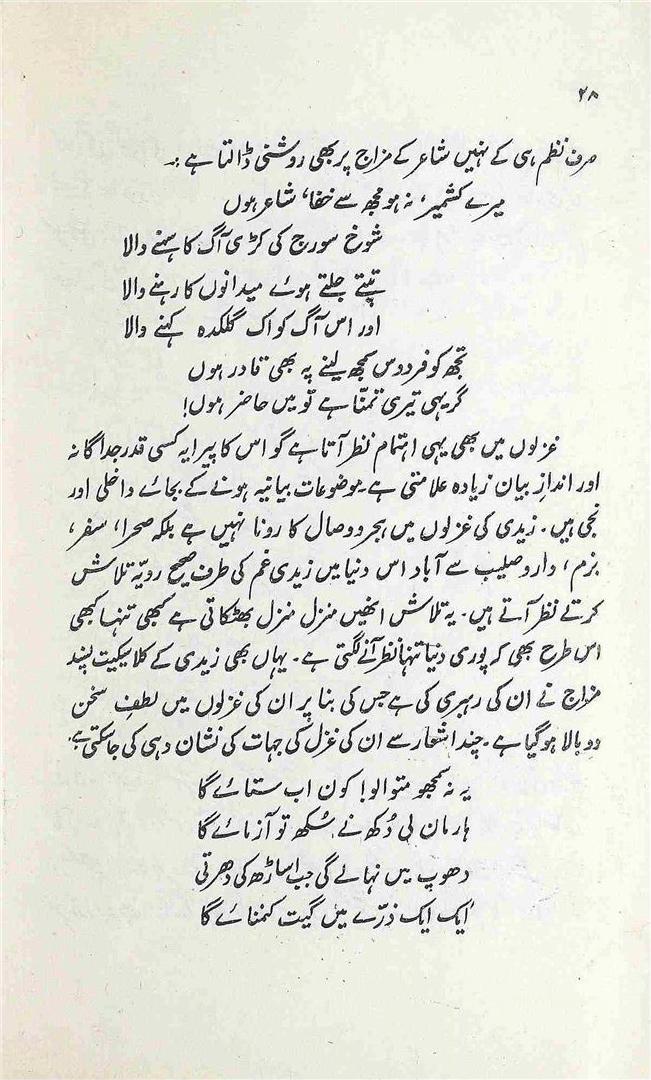 ۲۸
صرف نظم ہی کے نہیں شاعر کے مزاج پر بھی روشنی ڈالتا ہے :۔
میرے کشمیر، نہ ہو مجھ سے خفا، شاعر ہوں
شوخ سورج کی کڑی آگ کا سہنے والا
تپتے جلتے ہوئے میدانوں کا رہنے والا
اور اس آگ کو اک گلکدہ کہنے والا
تجھ کو فردوس سمجھ لینے پہ بھی قادر ہوں
گر یہی تیری تمنّا ہے تو میں حاضر ہوں!
غزلوں میں بھی یہی اہتمام نظر آتا ہے گو اس کا پیرایہ کسی قدر جداگانہ
اور اندازِ بیان زیادہ علامتی ہے۔ موضوعات بیانیہ ہونے کے بجائے داخلی اور
نجی ہیں۔ زیدی کی غزلوں میں ہجر و وصال کا رونا نہیں ہے بلکہ صحرا، سفر،
بزم، دار و صلیب سے آباد اس دنیا میں زیدی غم کی طرف صحیح رویّہ تلاش
کرتے نظر آتے ہیں۔ یہ تلاش انھیں منزل منزل بھٹکاتی ہے کبھی تنہا کبھی
اس طرح بھی کہ پوری دنیا تنہا نظر آنے لگتی ہے۔ یہاں بھی زیدی کے کلاسیکیت پسند
مزاج نے ان کی رہبری کی ہے جس کی بنا پر ان کی غزلوں میں لطفِ سخن
دوبالا ہو گیا ہے۔ چند اشعار سے ان کی غزل کی جہات کی نشان دہی کی جاسکتی ہے۔
یہ نہ سمجھو متوالو! کون اب ستائے گا
ہار مان لی دُکھ نے سُکھ تو آزمائے گا
دھوپ میں نہالے گی جب اساڑھ کی دھرتی
ایک ایک ذرّے میں گیت کنمنائے گا